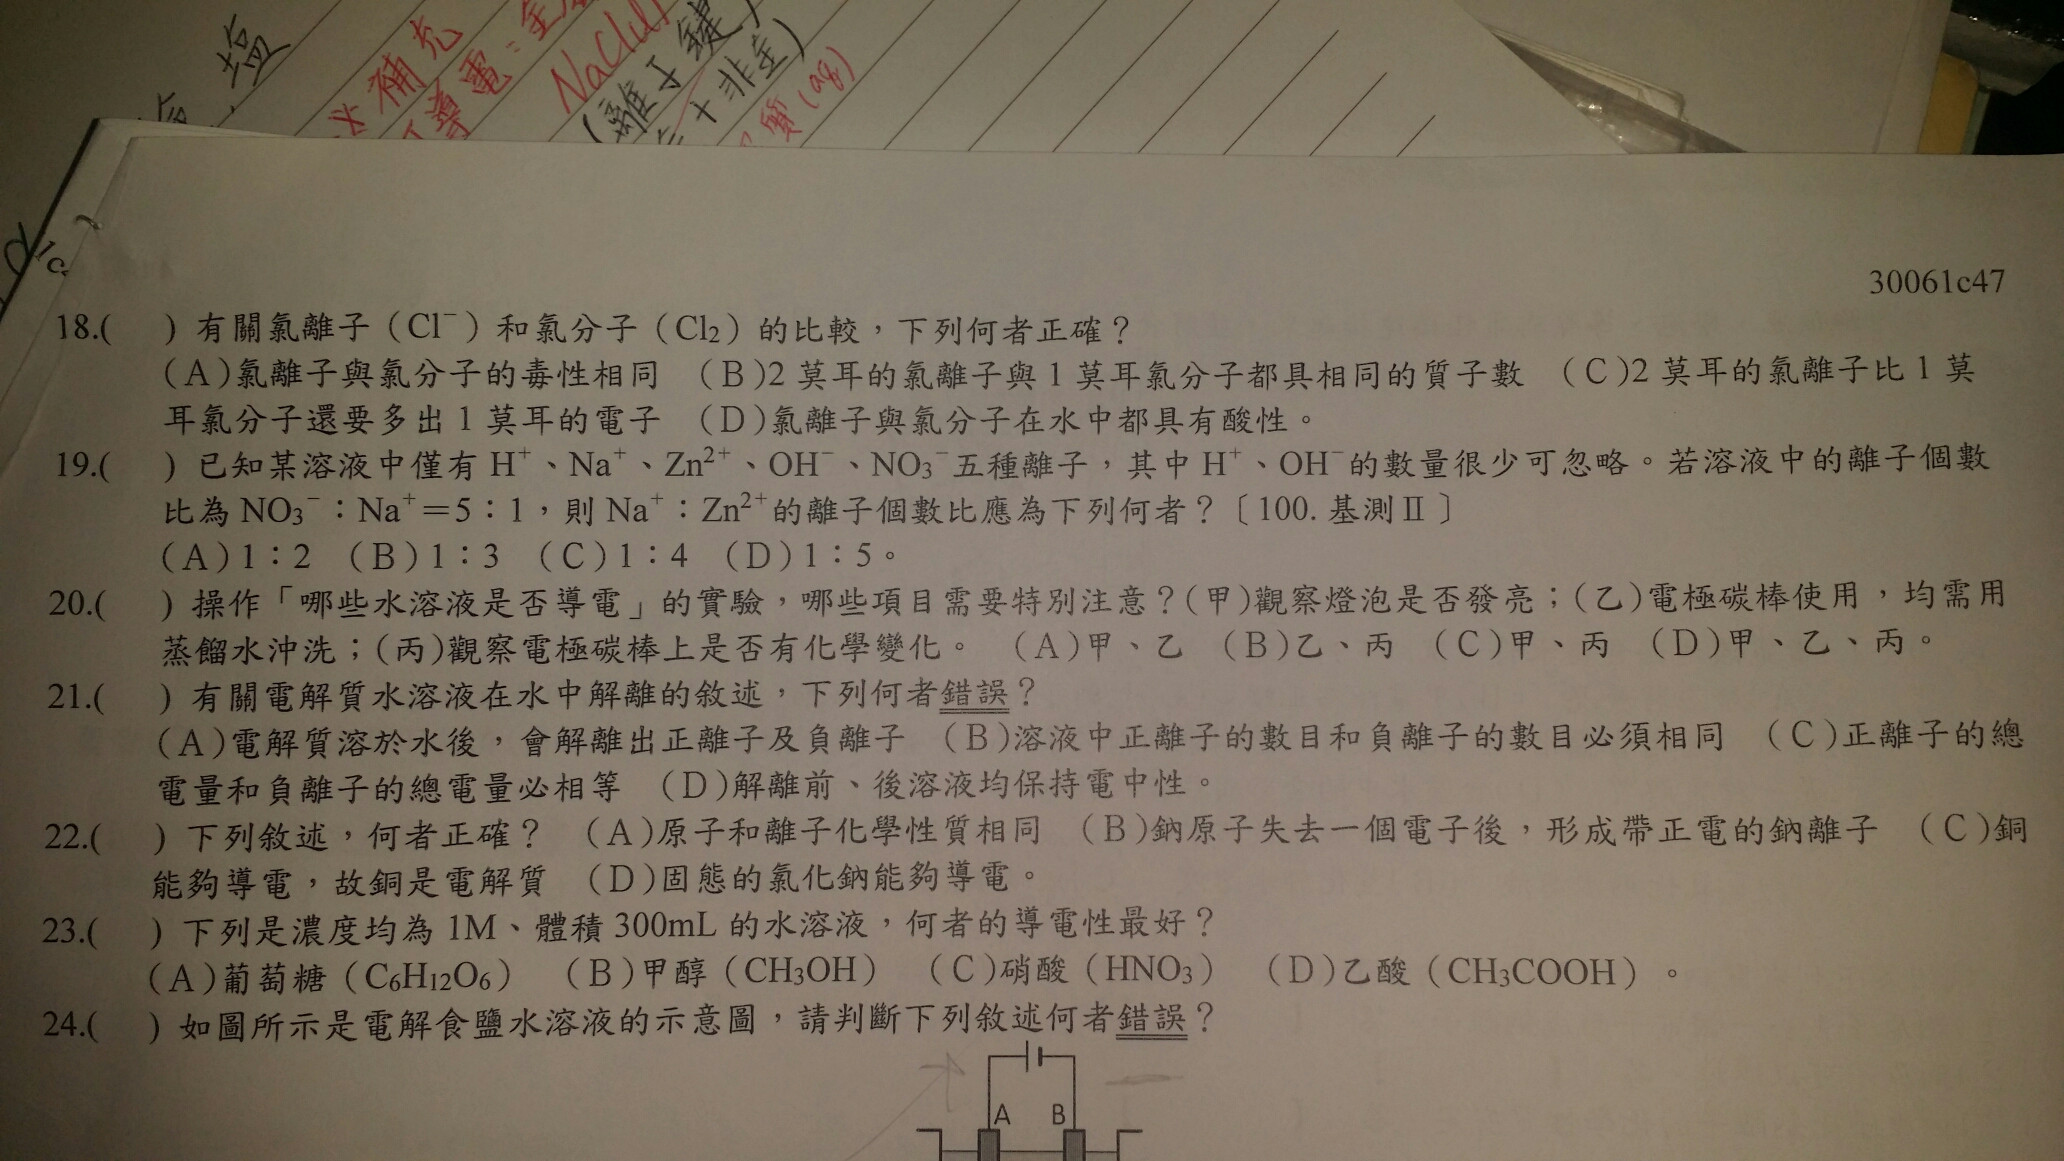 塩
必補充
可導電：金屬
NaCl(l)
(離子鍵)
金+非金)
質(aq)
30061c47
18.(　) 有關氯離子（Cl⁻）和氯分子（Cl₂）的比較，下列何者正確？
(A)氯離子與氯分子的毒性相同　(B)2 莫耳的氯離子與 1 莫耳氯分子都具相同的質子數　(C)2 莫耳的氯離子比 1 莫
耳氯分子還要多出 1 莫耳的電子　(D)氯離子與氯分子在水中都具有酸性。
19.(　) 已知某溶液中僅有 H⁺、Na⁺、Zn²⁺、OH⁻、NO₃⁻五種離子，其中 H⁺、OH⁻的數量很少可忽略。若溶液中的離子個數
比為 NO₃⁻：Na⁺＝5：1，則 Na⁺：Zn²⁺的離子個數比應為下列何者？〔100. 基測Ⅱ〕
(A)1：2　(B)1：3　(C)1：4　(D)1：5。
20.(　) 操作「哪些水溶液是否導電」的實驗，哪些項目需要特別注意？(甲)觀察燈泡是否發亮；(乙)電極碳棒使用，均需用
蒸餾水沖洗；(丙)觀察電極碳棒上是否有化學變化。　(A)甲、乙　(B)乙、丙　(C)甲、丙　(D)甲、乙、丙。
21.(　) 有關電解質水溶液在水中解離的敘述，下列何者錯誤？
(A)電解質溶於水後，會解離出正離子及負離子　(B)溶液中正離子的數目和負離子的數目必須相同　(C)正離子的總
電量和負離子的總電量必相等　(D)解離前、後溶液均保持電中性。
22.(　) 下列敘述，何者正確？　(A)原子和離子化學性質相同　(B)鈉原子失去一個電子後，形成帶正電的鈉離子　(C)銅
能夠導電，故銅是電解質　(D)固態的氯化鈉能夠導電。
23.(　) 下列是濃度均為 1M、體積 300mL 的水溶液，何者的導電性最好？
(A)葡萄糖（C₆H₁₂O₆）　(B)甲醇（CH₃OH）　(C)硝酸（HNO₃）　(D)乙酸（CH₃COOH）。
24.(　) 如圖所示是電解食鹽水溶液的示意圖，請判斷下列敘述何者錯誤？
A B